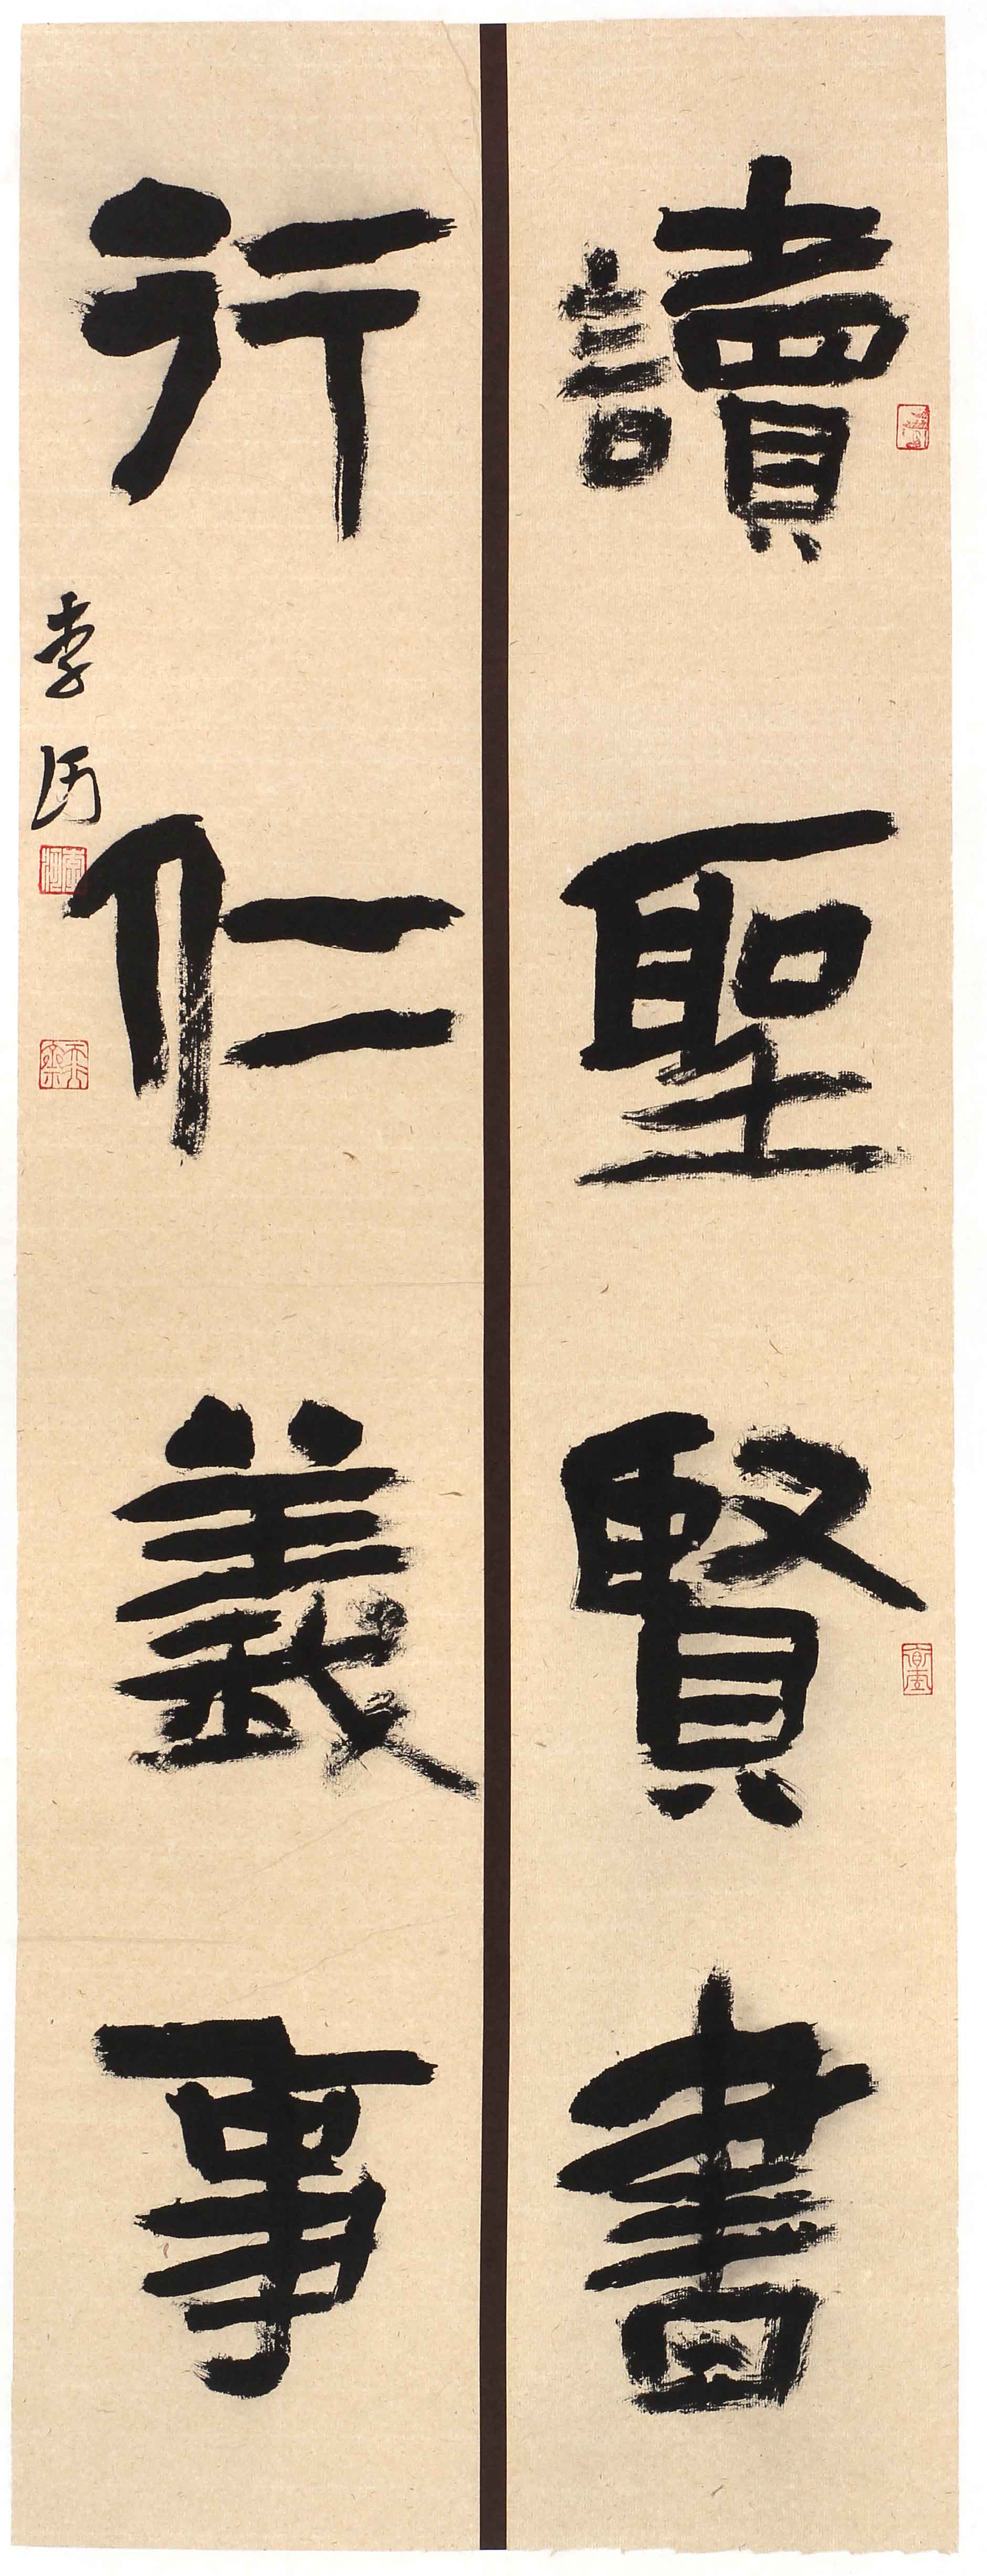 讀聖賢書
行仁義事
李河